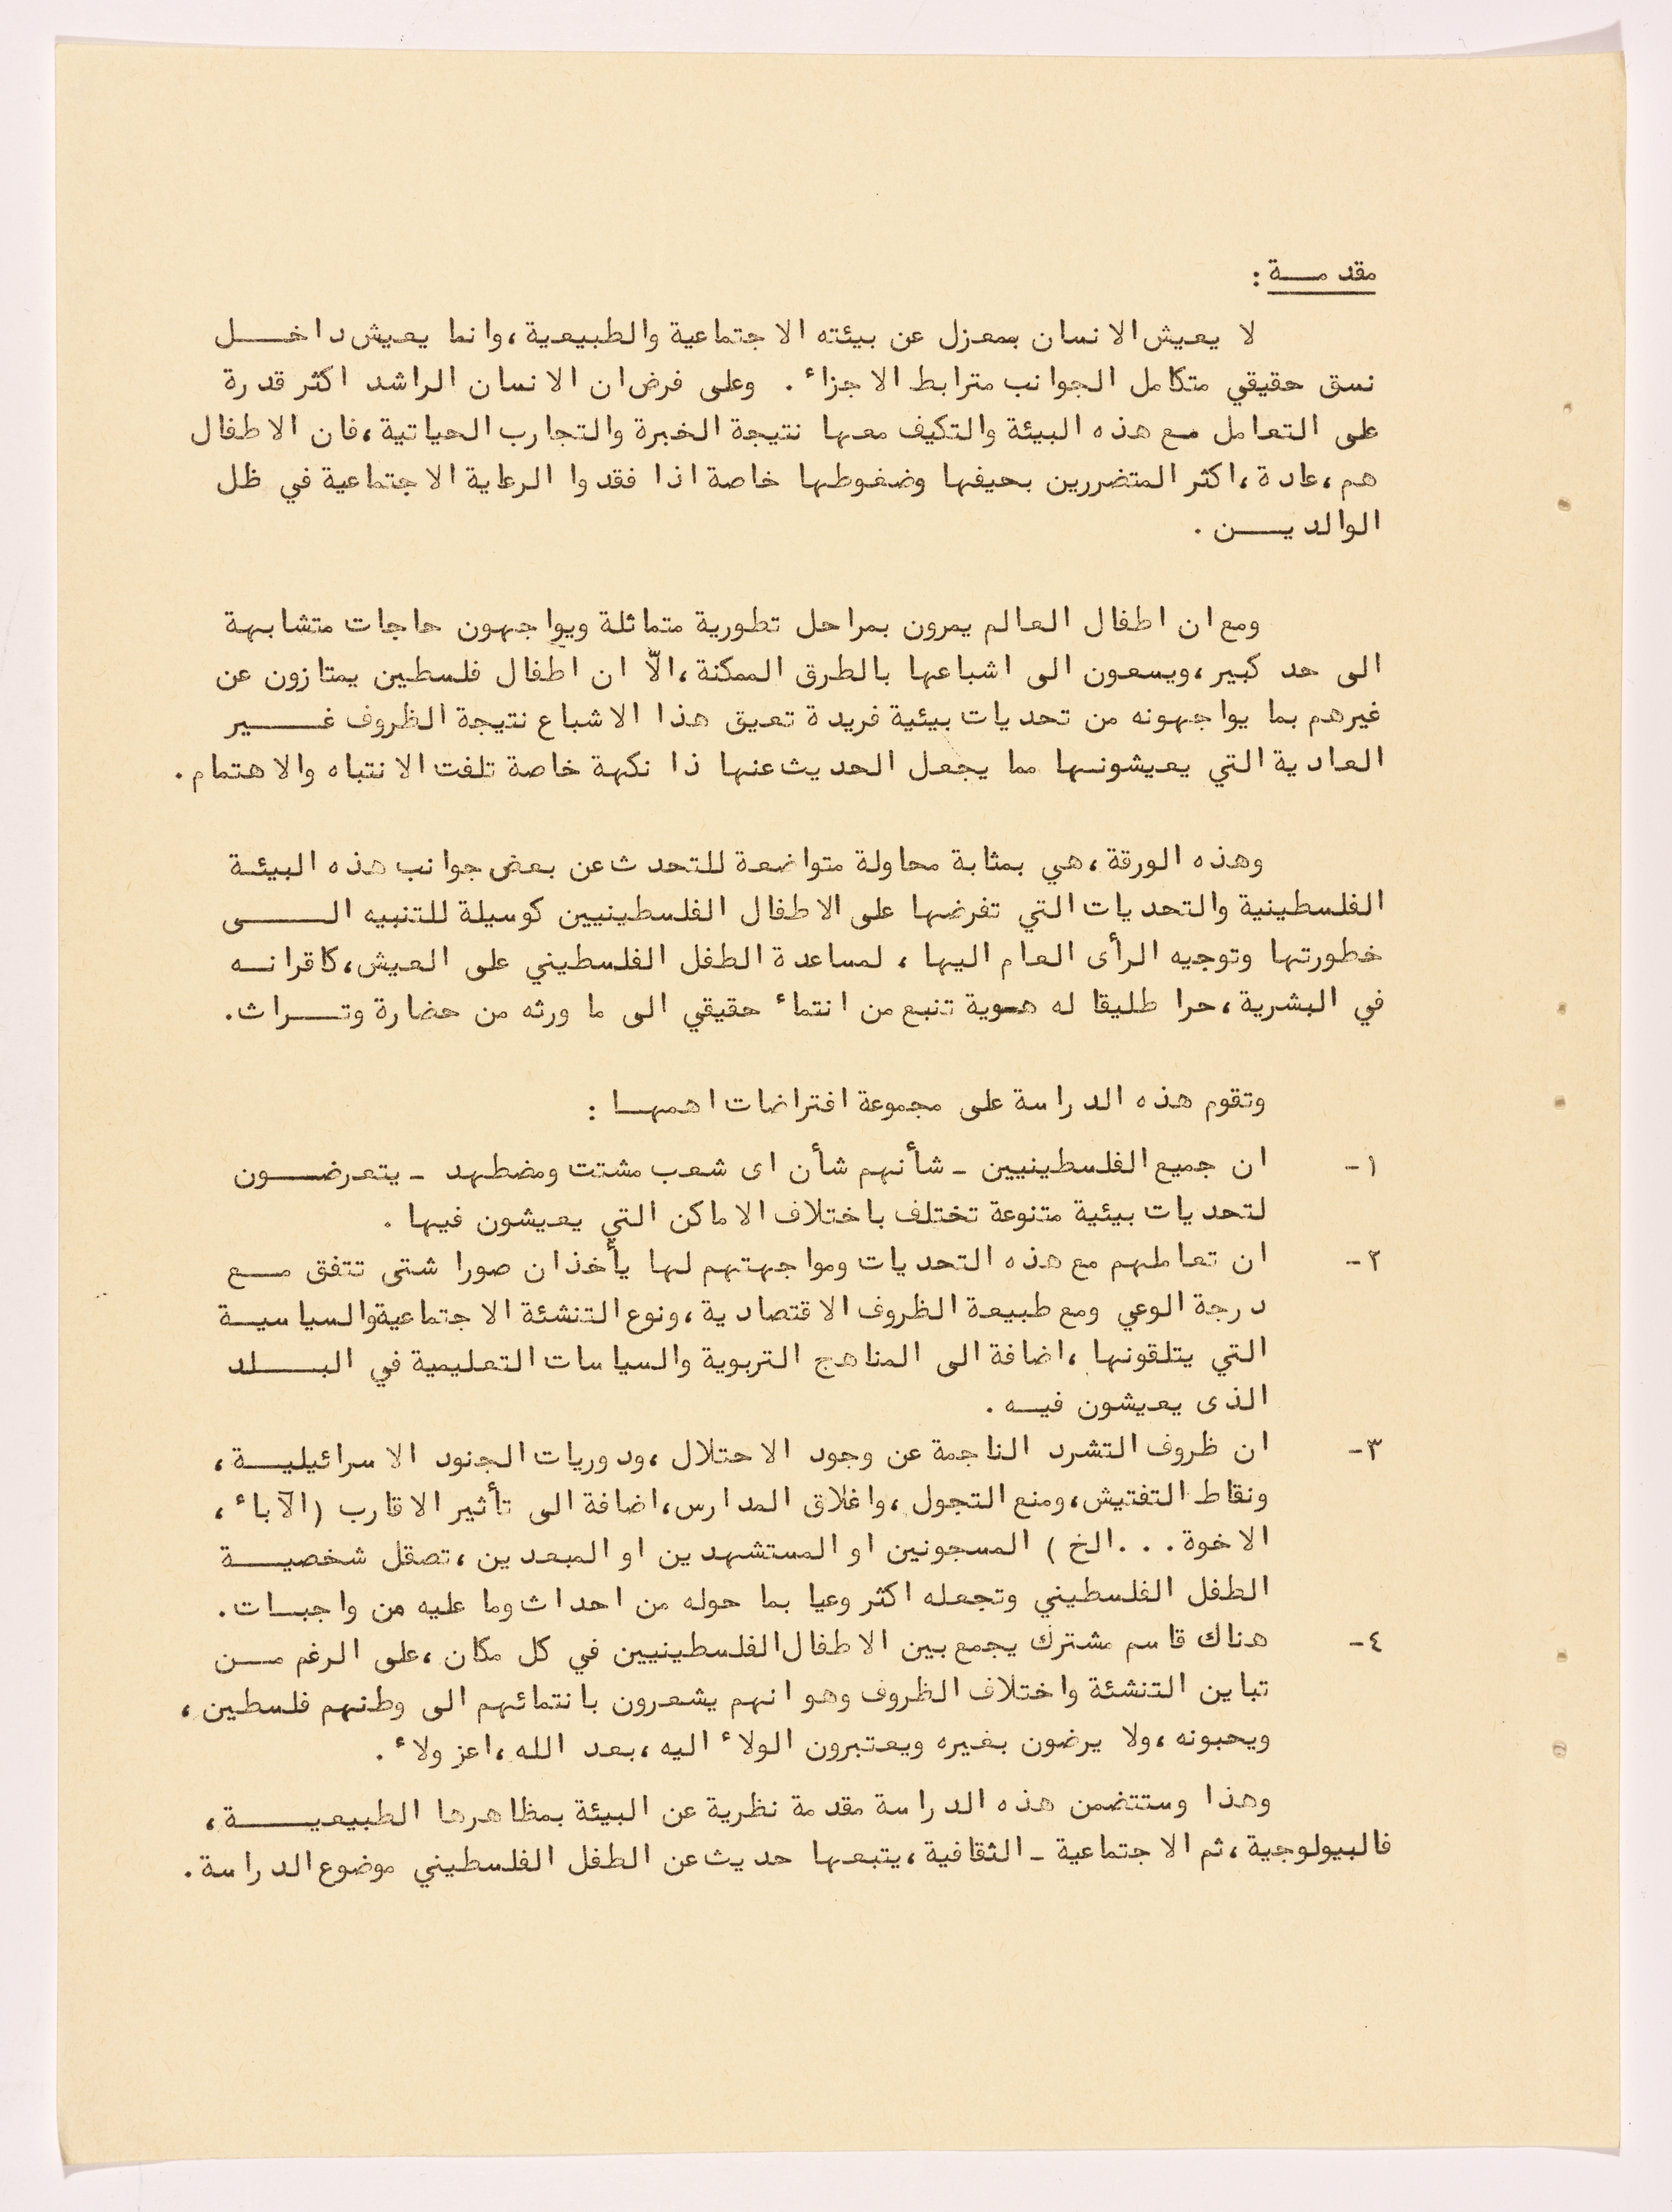 مقدمــة :
لا يعيش الانسان بمعزل عن بيئته الاجتماعية والطبيعية ،وانما يعيش داخـــل
نسق حقيقي متكامل الجوانب مترابط الاجزاء . وعلى فرض ان الانسان الراشد اكثر قدرة
على التعامل مع هذه البيئة والتكيف معها نتيجة الخبرة والتجارب الحياتية ،فان الاطفال
هم ،عادة ،اكثر المتضررين بحيفها وضغوطها خاصة اذا فقدوا الرعاية الاجتماعية في ظل
الوالديــن .
ومع ان اطفال العالم يمرون بمراحل تطورية متماثلة ويواجهون حاجات متشابهة
الى حد كبير ،ويسعون الى اشباعها بالطرق الممكنة ،الاّ ان اطفال فلسطين يمتازون عن
غيرهم بما يواجهونه من تحديات بيئية فريدة تعيق هذا الاشباع نتيجة الظروف غــــير
العادية التي يعيشونـها مما يجعل الحديث عنها ذا نكهة خاصة تلفت الانتباه والاهتمام .
وهذه الورقة ،هي بمثابة محاولة متواضعة للتحدث عن بعض جوانب هذه البيئـة
الفلسطينية والتحديات التي تفرضها على الاطفال الفلسطينيين كوسيلة للتنبيه الــــى
خطورتها وتوجيه الرأى العام اليها ، لمساعدة الطفل الفلسطيني على العيش ،كاقرانــه
في البشرية ،حرا طليقا له هـوية تنبع من انتماء حقيقي الى ما ورثه من حضارة وتـــراث .
وتقوم هذه الدراسة على مجموعة افتراضات اهمهـا :
١- ان جميع الفلسطينيين ـ شأنهم شأن اى شعب مشتت ومضطهد ـ يتعرضـــون
لتحديات بيئية متنوعة تختلف باختلاف الاماكن التي يعيشون فيها .
٢- ان تعاملهم مع هذه التحديات ومواجهتهم لها يأخذان صورا شتى تتفق مـــع
درجة الوعي ومع طبيعة الظروف الاقتصادية ،ونوع التنشئة الاجتماعية والسياسيــة
التي يتلقونها ،اضافة الى المناهج التربوية والسياسات التعليمية في البـــلد
الذى يعيشون فيــه .
٣- ان ظروف التشرد الناجمة عن وجود الاحتلال ،ودوريات الجنود الاسرائيليــة ،
ونقاط التفتيش ،ومنع التجول ،واغلاق المدارس ،اضافة الى تأثير الاقارب (الآباء ،
الاخوة . . .الخ ) المسجونين او المستشهدين او المبعدين ،تصقل شخصيـــة
الطفل الفلسطيني وتجعله اكثر وعيا بما حوله من احداث وما عليه من واجبـات .
٤- هناك قاسم مشترك يجمع بين الاطفال الفلسطينيين في كل مكان ،على الرغم مـــن
تباين التنشئة واختلاف الظروف وهو انهم يشعرون بانتمائهم الى وطنهم فلسطين ،
ويحبونه ،ولا يرضون بغيره ويعتبرون الولاء اليه ،بعد الله ،اعز ولاء .
وهذا وستتضمن هذه الدراسة مقدمة نظرية عن البيئة بمظاهرها الطبيعيـــــة ،
فالبيولوجية ،ثم الاجتماعية ـ الثقافية ،يتبعها حديث عن الطفل الفلسطيني موضوع الدراسة .